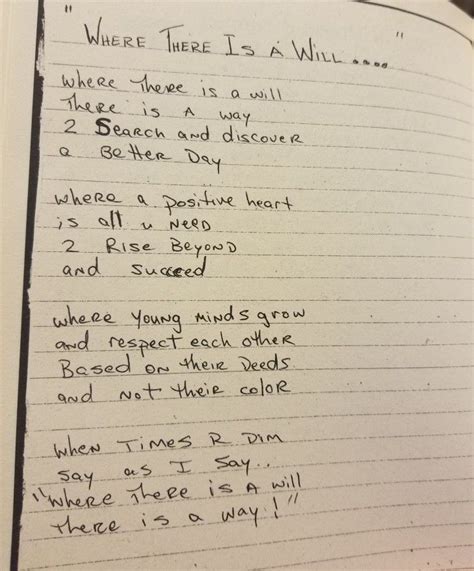 "WHERE THERE IS A WILL...."
where there is a will
There is A way
2 Search and discover
a Better Day
where a positive heart
is all u NEED
2 Rise Beyond
and succeed
where Young MINDS grow
and respect each other
Based on their Deeds
and not their color
when Times R Dim
say as I say..
"where There is A will
there is a way!"